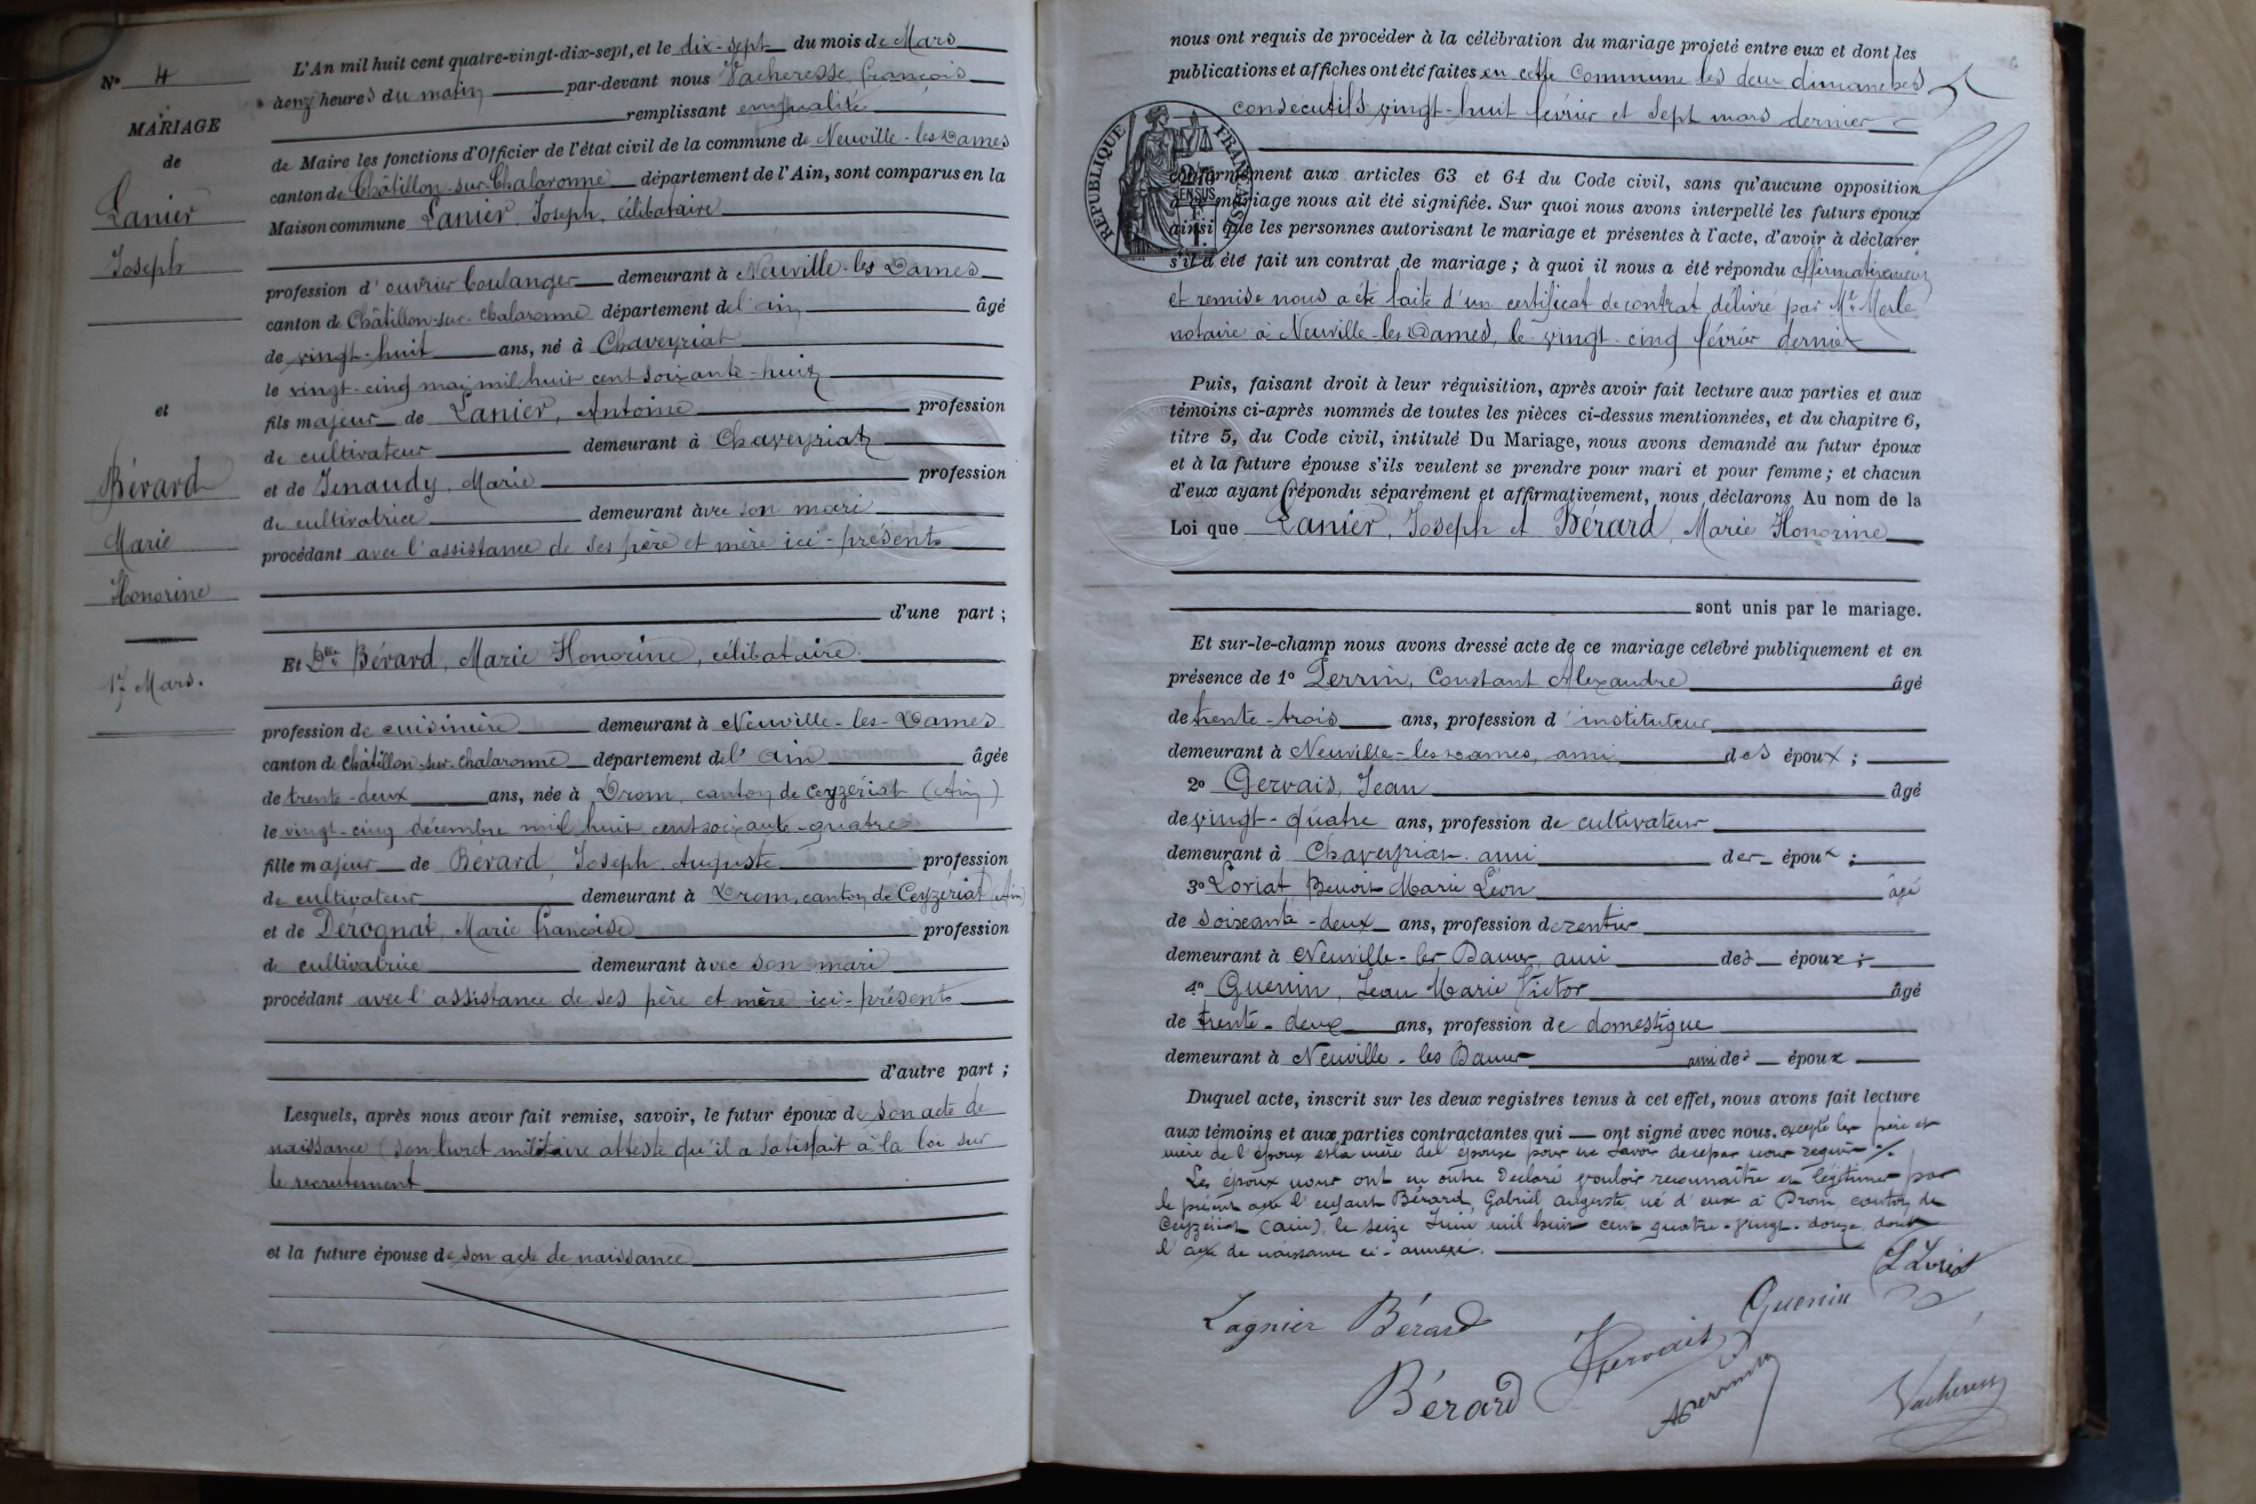 L'An mil huit cent quatre-vingt-dix-sept, et le dix-sept du mois de Mars
N° 4
à onze heures du matin par-devant nous Vacheresse, François
remplissant en qualité
MARIAGE
de Maire les fonctions d'Officier de l'état civil de la commune de Neuville-les-Dames
de
canton de Châtillon-sur-Chalaronne département de l'Ain, sont comparus en la
Lanier
Maison commune Lanier, Joseph, célibataire
Joseph
profession d'ouvrier boulanger demeurant à Neuville-les Dames
canton de Châtillon-sur-Chalaronne département de l'ain âgé
de vingt-huit ans, né à Chaveyriat
le vingt-cinq mai mil huit cent soixante-huit
et
fils majeur de Lanier, Antoine profession
de cultivateur demeurant à Chaveyriat
Bérard
et de Jenaudy, Marie profession
de cultivatrice demeurant avec son mari
Marie
procédant avec l'assistance de ses père et mère ici-présents
Honorine
d'une part ;
Et Dlle Bérard, Marie Honorine, célibataire
17 Mars.
profession de cuisinière demeurant à Neuville-les-Dames
canton de Châtillon-sur-Chalaronne département de l'ain âgée
de trente-deux ans, née à Drom, canton de Ceyzériat (Ain)
le vingt-cinq décembre mil huit cent soixante-quatre
fille majeur de Bérard, Joseph Auguste profession
de cultivateur demeurant à Drom, canton de Ceyzériat (Ain)
et de Dérognat, Marie Françoise profession
de cultivatrice demeurant avec son mari
procédant avec l'assistance de ses père et mère ici-présents
d'autre part ;
Lesquels, après nous avoir fait remise, savoir, le futur époux de son acte de
naissance (son livret militaire atteste qu'il a satisfait à la loi sur
le recrutement
et la future épouse de son acte de naissance
nous ont requis de procéder à la célébration du mariage projeté entre eux et dont les
publications et affiches ont été faites en cette Commune les deux dimanches
consécutifs vingt-huit février et sept mars dernier
RÉPUBLIQUE FRANÇAISE
conformément aux articles 63 et 64 du Code civil, sans qu'aucune opposition
à ce mariage nous ait été signifiée. Sur quoi nous avons interpellé les futurs époux
ainsi que les personnes autorisant le mariage et présentes à l'acte, d'avoir à déclarer
s'il a été fait un contrat de mariage ; à quoi il nous a été répondu affirmativement
et remise nous a été faite d'un certificat de contrat délivré par Me Merle
notaire à Neuville-les-Dames, le vingt-cinq février dernier
Puis, faisant droit à leur réquisition, après avoir fait lecture aux parties et aux
témoins ci-après nommés de toutes les pièces ci-dessus mentionnées, et du chapitre 6,
titre 5, du Code civil, intitulé Du Mariage, nous avons demandé au futur époux
et à la future épouse s'ils veulent se prendre pour mari et pour femme ; et chacun
d'eux ayant répondu séparément et affirmativement, nous déclarons Au nom de la
Loi que Lanier, Joseph et Bérard, Marie Honorine
sont unis par le mariage.
Et sur-le-champ nous avons dressé acte de ce mariage célébré publiquement et en
présence de 1° Perrin, Constant Alexandre âgé
de trente-trois ans, profession d'instituteur
demeurant à Neuville-les-Dames, ami des époux ;
2° Gervais, Jean âgé
de vingt-quatre ans, profession de cultivateur
demeurant à Chaveyriat ami des époux ;
3° Loriat, Benoit Marie Léon âgé
de soixante-deux ans, profession de rentier
demeurant à Neuville-les-Dames, ami des époux ;
4° Guenin, Jean Marie Victor âgé
de trente-deux ans, profession de domestique
demeurant à Neuville-les Dames ami des époux
Duquel acte, inscrit sur les deux registres tenus à cet effet, nous avons fait lecture
aux témoins et aux parties contractantes qui ont signé avec nous. excepté les père et
mère de l'époux et la mère de l'épouse pour ne savoir de ce par nous requis
Les époux nous ont en outre déclaré vouloir reconnaître et légitimer par
le présent acte l'enfant Bérard, Gabriel Auguste, né d'eux à Drom, canton de
Ceyzériat (Ain), le seize Juin mil huit cent quatre-vingt-douze dont
l'acte de naissance ci-annexé.
Lagnier Bérard Guenin
Bérard Gervais Perrin Vacheresse